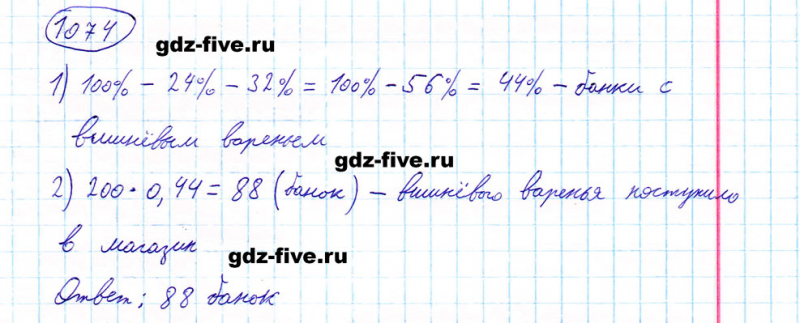 1074
gdz-five.ru
1) 100% - 24% - 32% = 100% - 56% = 44% - банки с
вишнёвым вареньем
gdz-five.ru
2) 200 · 0,44 = 88 (банок) - вишнёвого варенья поступило
в магазин
gdz-five.ru
Ответ: 88 банок